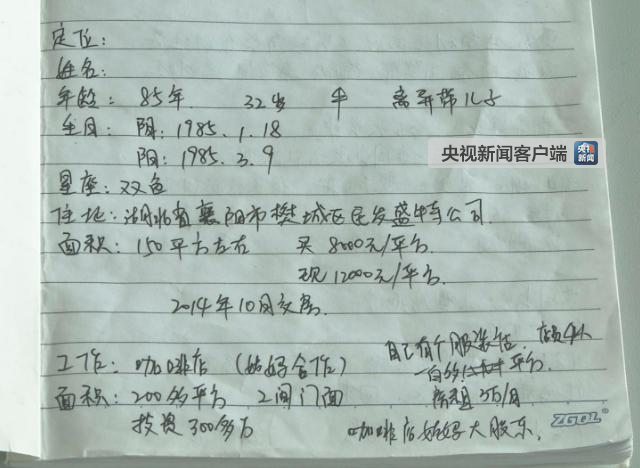 定位:
姓名:
年龄: 85年 32岁 牛 离异带儿子
生日: 阴: 1985.1.18
阳: 1985.3.9
央视新闻客户端 央视新闻
星座: 双鱼
住地: 湖北省襄阳市樊城区民发盛特公司.
面积: 150平方左右 买 8000元/平方.
现 12000元/平方.
2014年10月交房.
自己有个服装店. 店员4人
工作: 咖啡店 (姑好合作) 一百多平方.
面积: 200多平方 2间门面 房租 3万/月
投资 300多万 咖啡店姑好大股东.